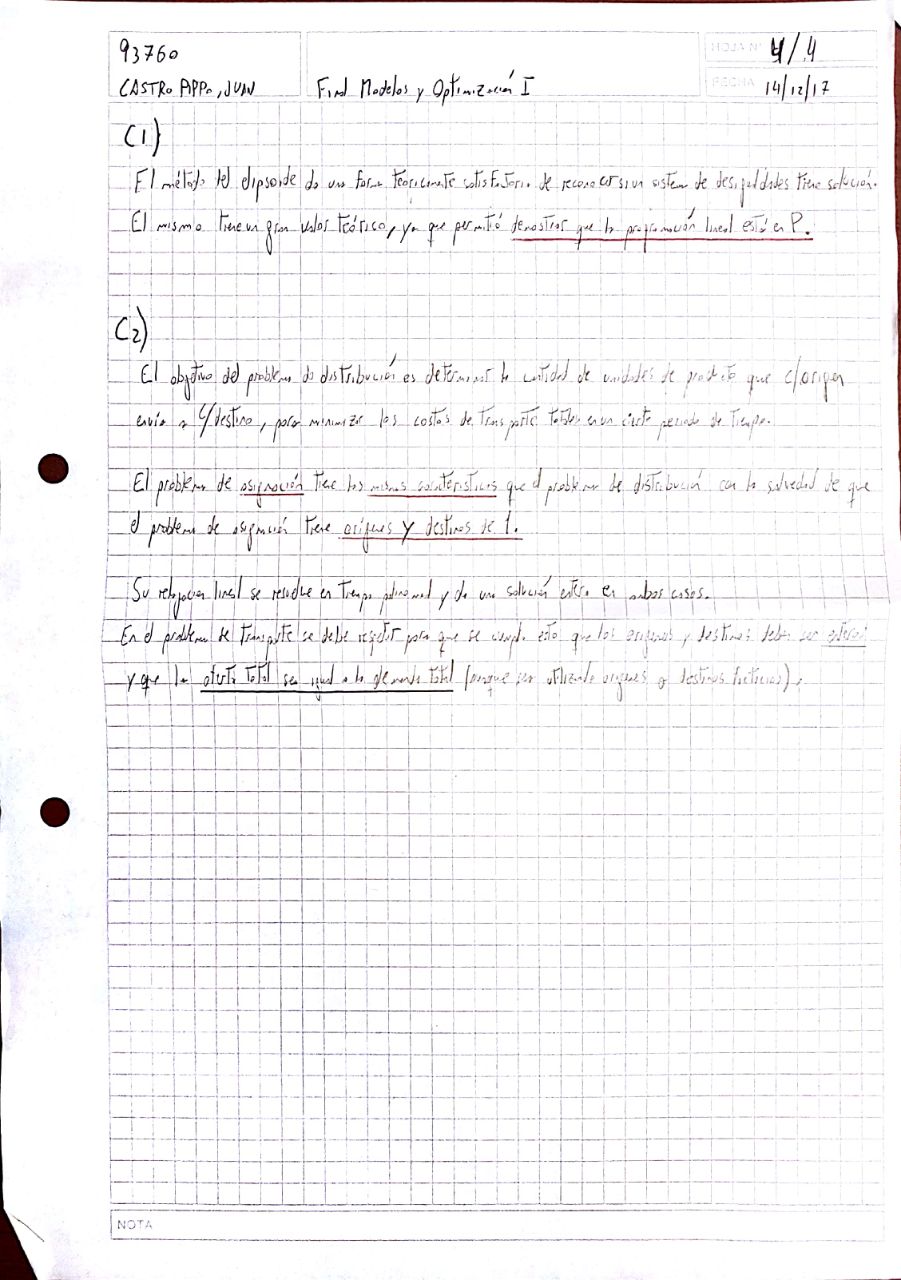 93760
HOJA Nº 4/4
CASTRO PIPPO, JUAN
Final Modelos y Optimización I
FECHA 14/12/17
C1)
El método del elipsoide da una forma teóricamente satisfactoria de reconocer si un sistema de desigualdades tiene solución.
El mismo tiene un gran valor teórico, ya que permitió demostrar que la programación lineal está en P.
C2)
El objetivo del problema de distribución es determinar la cantidad de unidades de producto que c/origen
envía a c/destino, para minimizar los costos de transporte totales en un cierto periodo de tiempo.
El problema de asignación tiene las mismas características que el problema de distribución con la salvedad de que
el problema de asignación tiene orígenes y destinos de 1.
Su relajación lineal se resuelve en tiempo polinomial y da una solución entera en ambos casos.
En el problema de transporte se debe respetar para que se cumpla esto que los orígenes y destinos deben ser enteros
y que la oferta total sea igual a la demanda total (aunque sea utilizando orígenes o destinos ficticios).
NOTA